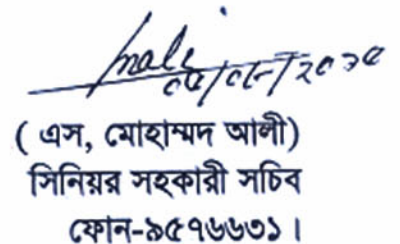 ( এস, মোহাম্মদ আলী)
সিনিয়র সহকারী সচিব
ফোন-৯৫৭৬৬৩১।